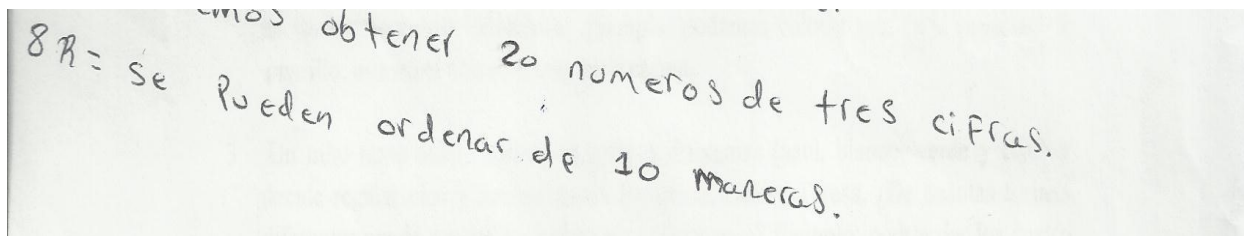 obtener 20 numeros de tres cifras.
8R= Se Pueden ordenar de 10 maneras.